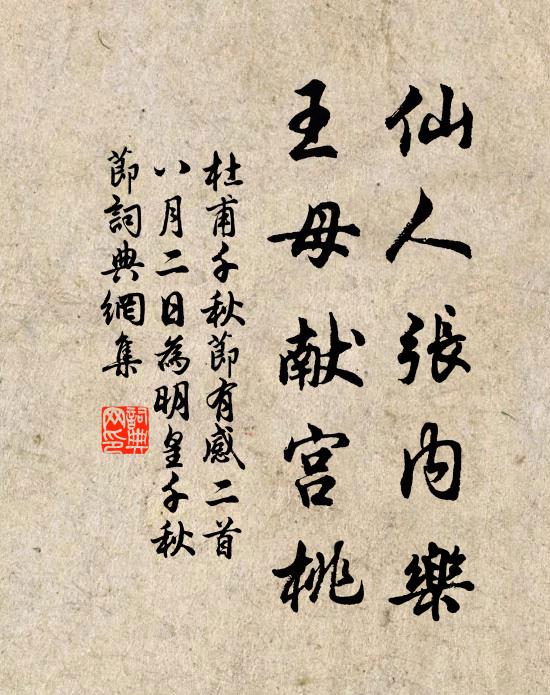 仙人張内樂
王母献宫桃
杜甫千秋節有感二首
八月二日為明皇千秋
節詞典網集
詞典网印